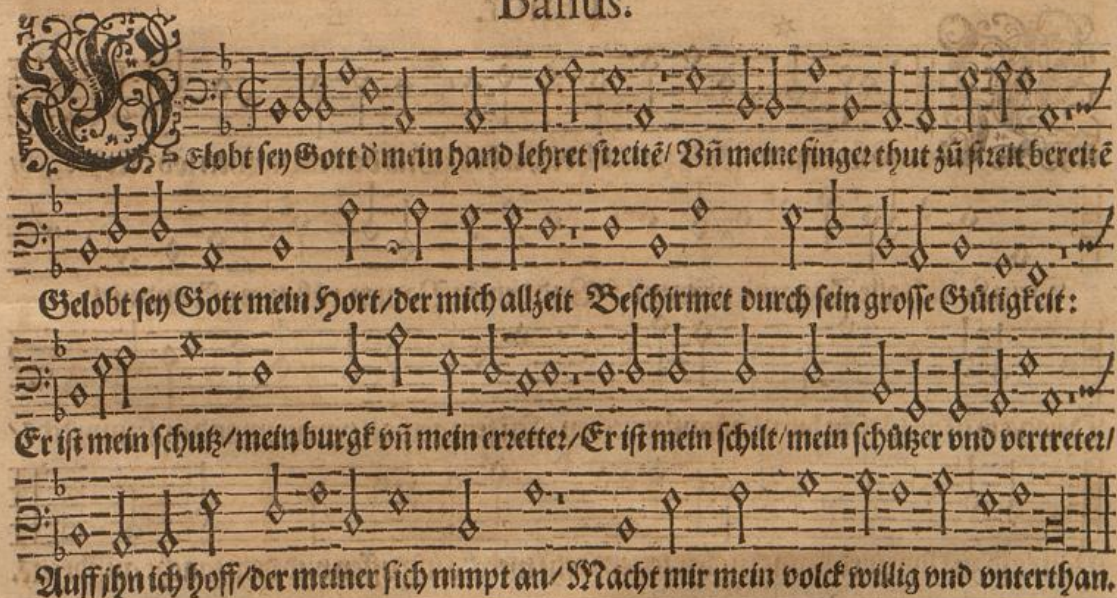 Bassus.
GElobt sey Gott d' mein hand lehret streitē/ Vñ meine finger thut zū streit bereitē
Gelobt sey Gott mein Hort/der mich allzeit Beschirmet durch sein grosse Gütigkeit:
Er ist mein schutz/mein burgk vñ mein erretter/Er ist mein schilt/mein schützer vnd vertreter/
Auff jhn ich hoff/der meiner sich nimpt an/ Macht mir mein volck willig vnd vnterthan.